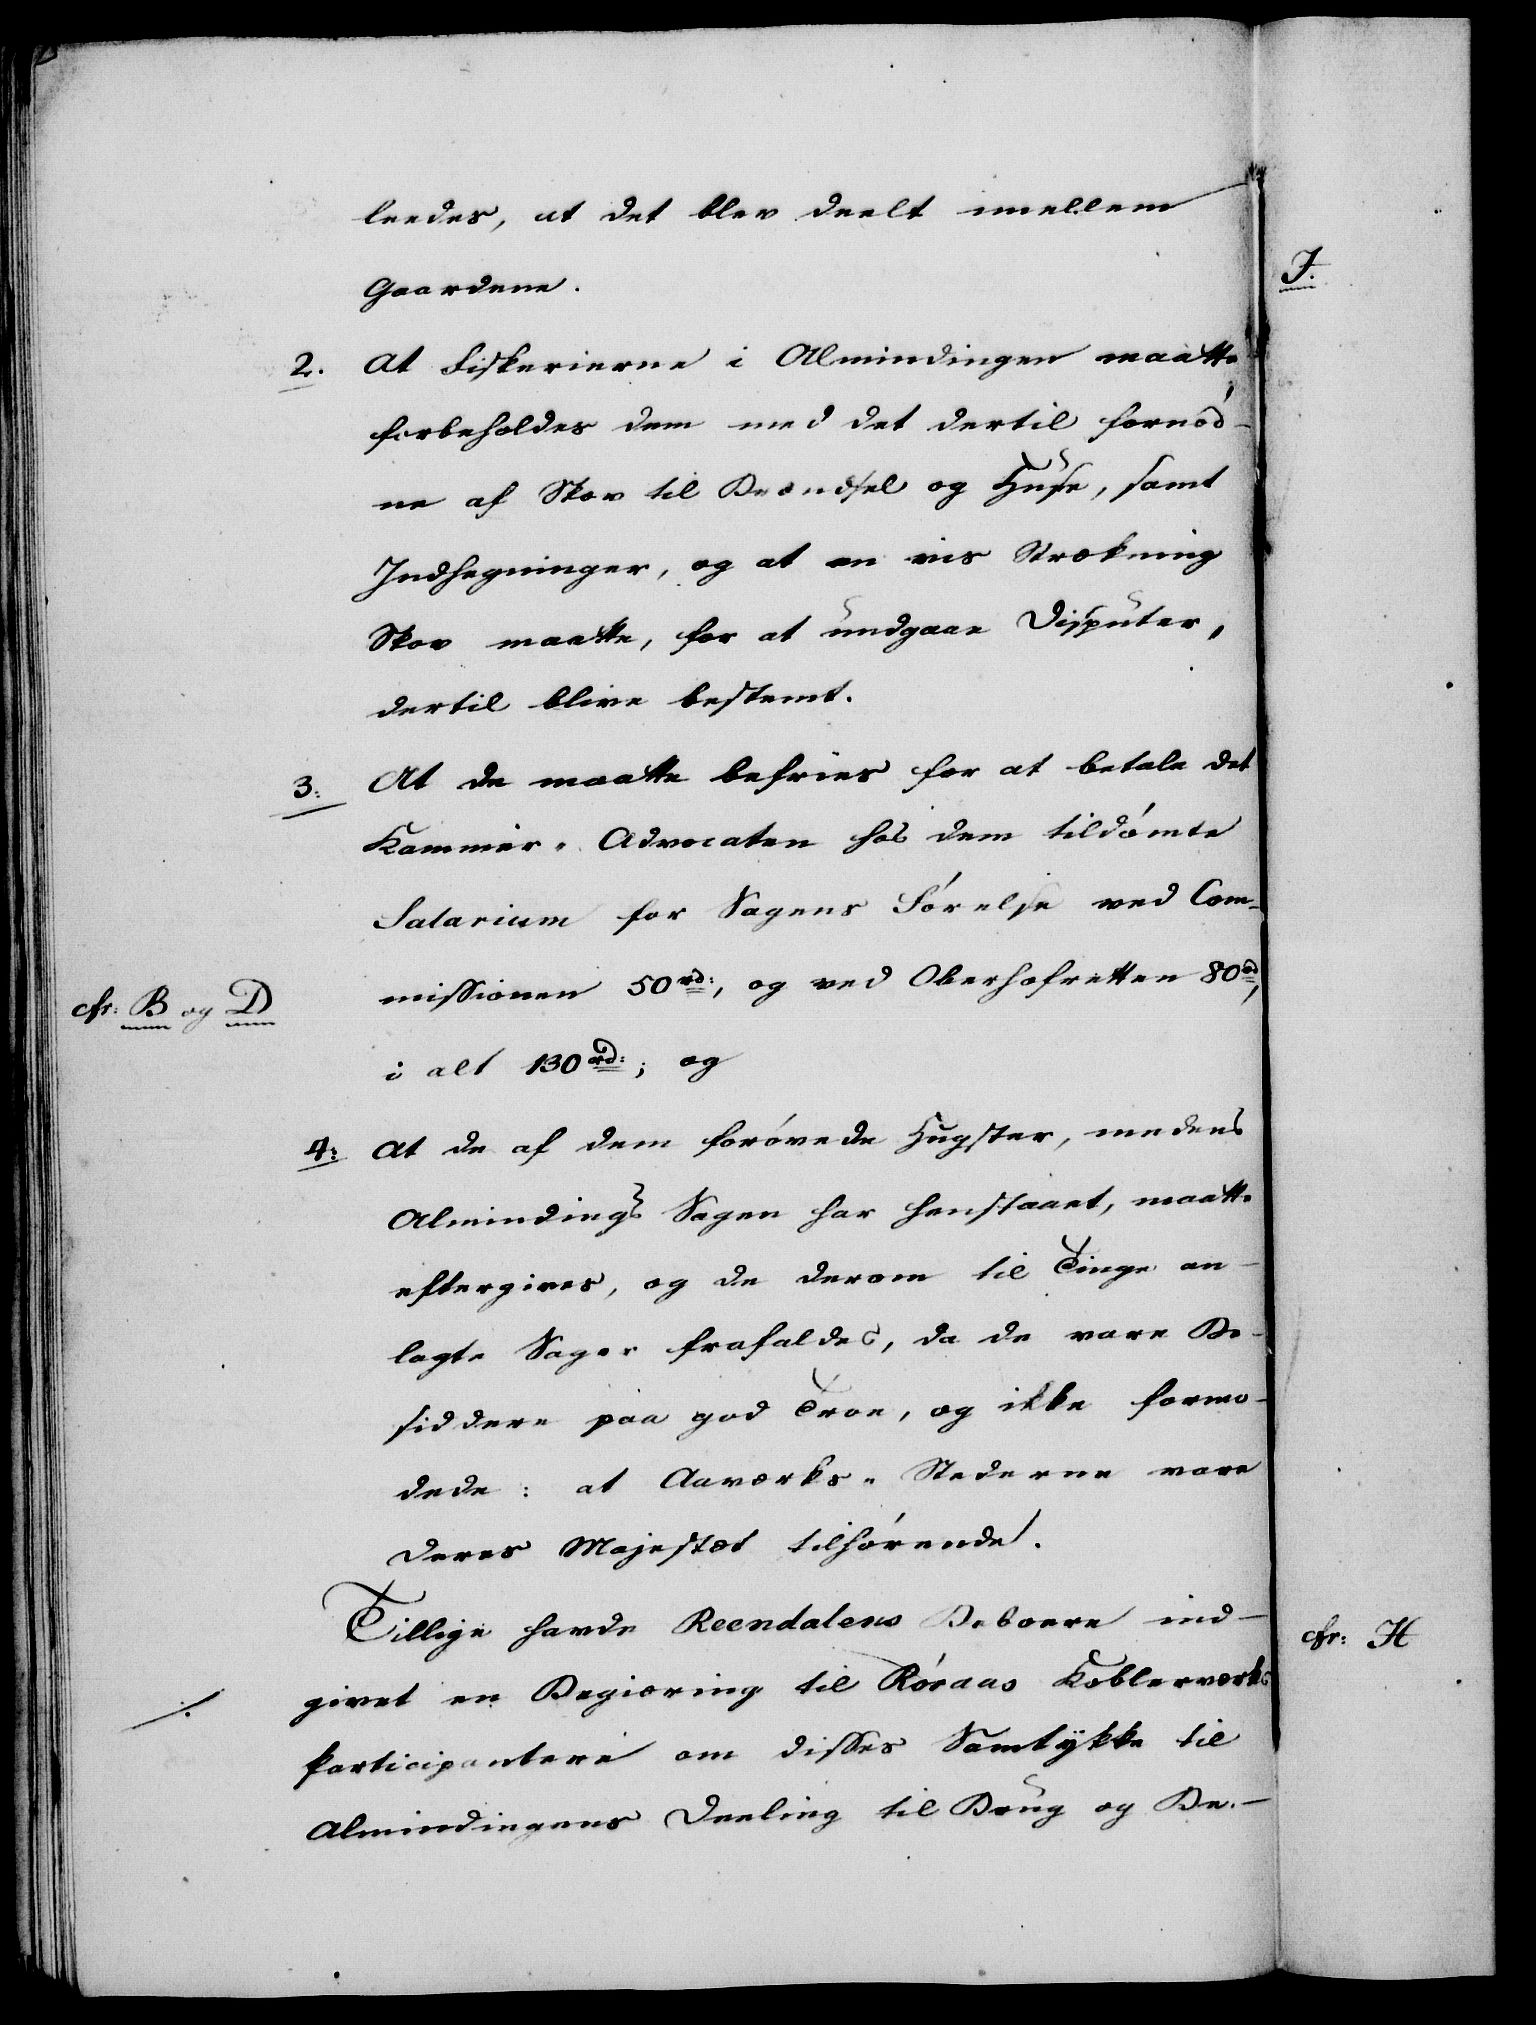 leedes, at det blev deelt imellem
Gaardene.
2. At Fiskerierne i Almindingen maatte
forbeholdes dem med det dertil fornöd-
ne af Skov til Brændsel og Huse, samt
Indhegninger, og at en vis Strækning
Skov maatte, for at undgaae Disputer,
dertil blive bestemt.
3: At de maatte befries for at betale det
Kammer-Advocaten hos dem tildömte
Salarium for Sagens Förelse ved Com-
cfr: B og D
missionen 50 rd:, og ved Oberhofretten 80 rd,
i alt 130 rd:; og
4: At de af dem forövede Hugster, medens
Almindings Sagen har henstaaet, maatte
eftergives, og de derom til Tinge an-
lagte Sager frafaldes, da de vare Be-
siddere paa god Troe, og ikke formo-
dede: at Aaværks-Stederne vare
Deres Majestæt tilhörende.
Tillige havde Reendalens Beboere ind-
givet en Begiæring til Röraas Kobberværks
Participantere om disses Samtykke til
Almindingens Deeling til Brug og Be-
J.
cfr: H
./.